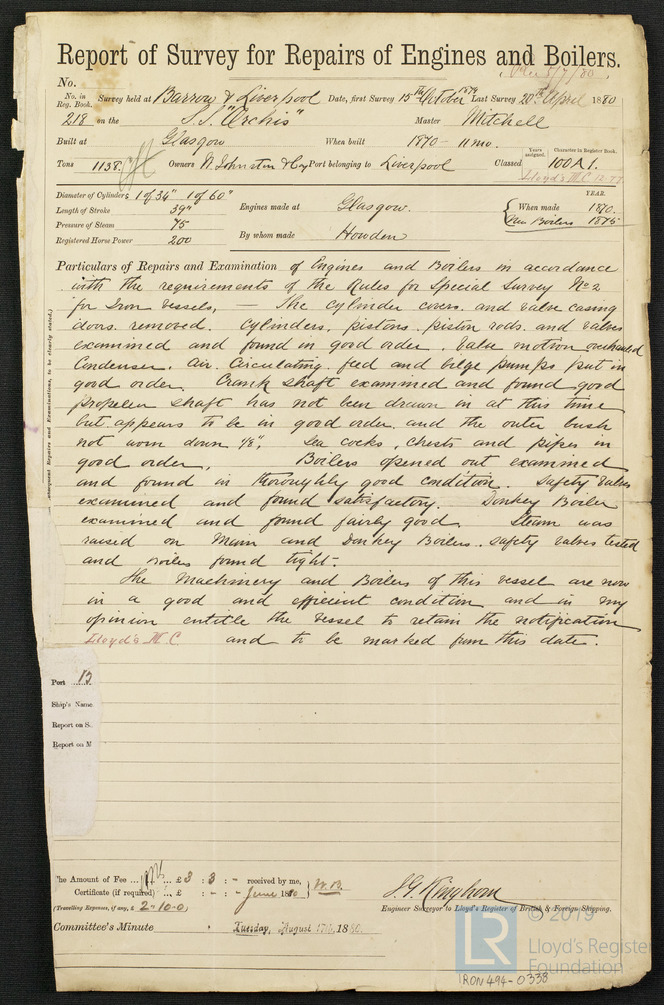 Report of Survey for Repairs of Engines and Boilers.
5/7/80
No.
No. in Reg. Book. Survey held at Barrow & Liverpool Date, first Survey 15th October 1879 Last Survey 20th April 1880
218 on the S.S. "Archis" Master Mitchell
Built at Glasgow When built 1870 - 11 mo. Years assigned. Character in Register Book.
Tons 1138 Owners W. Johnston & Co Port belonging to Liverpool Classed 100A1.
Lloyd's M.C. 12.77
Diameter of Cylinders 1 of 34" 1 of 60"
Length of Stroke 39"
Pressure of Steam 75
Registered Horse Power 200
Engines made at Glasgow.
By whom made Howden
YEAR.
When made 1870.
New Boilers 1875
Particulars of Repairs and Examination of Engines and Boilers in accordance
with the requirements of the Rules for Special Survey No 2
for Iron vessels, — The cylinder covers and valve casing
doors removed. Cylinders, pistons, piston rods and valves
examined and found in good order, Valve motion overhauled
Condenser, air, circulating, feed and bilge pumps put in
good order. Crank shaft examined and found good
propeller shaft has not been drawn in at this time
but appears to be in good order and the outer bush
not worn down 1/8", Sea cocks, chests and pipes in
good order, Boilers opened out examined
and found in thoroughly good condition. Safety valves
examined and found satisfactory. Donkey Boiler
examined and found fairly good. Steam was
raised on Main and Donkey Boilers, safety valves tested
and boilers found tight.
The Machinery and Boilers of this vessel are now
in a good and efficient condition and in my
opinion entitle the vessel to retain the notification
Lloyd's M.C and to be marked from this date.
Repairs and Examinations, to be clearly stated.)
Port
Ship's Name
Report on S.
Report on M
The Amount of Fee ... £3 : 3 : - received by me,
Certificate (if required) ... £ : - : - June 1880 W.B.
(Travelling Expenses, if any, £ 2-10-0)
J. G. Kinghorn
Engineer Surveyor to Lloyd's Register of British & Foreign Shipping.
Committee's Minute Tuesday, August 17th, 1880.
© 2019
LR
Lloyd's Register
Foundation
RON494-0338